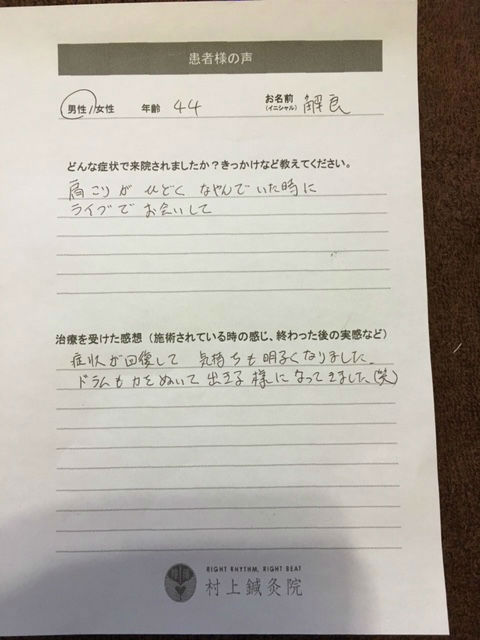 患者様の声
男性/女性 年齢 44 お名前(イニシャル) 解良
どんな症状で来院されましたか？きっかけなど教えてください。
肩こりが ひどく なやんでいた時に
ライブで お会いして
治療を受けた感想（施術されている時の感じ、終わった後の実感など）
症状が回復して 気持ちも明るくなりました。
ドラムも力をぬいて出来る様になってきました(笑)
RIGHT RHYTHM, RIGHT BEAT
村上鍼灸院